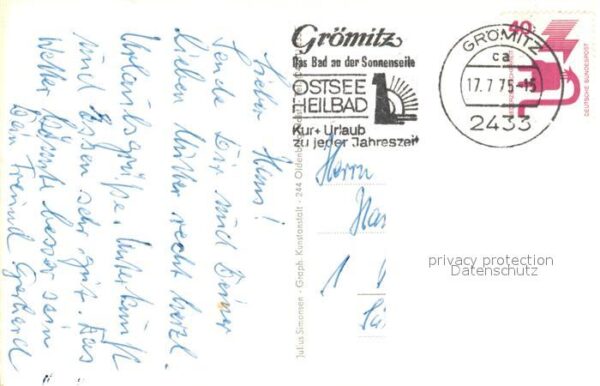 Lieber Hans!
Sende Dir und Deiner
lieben Mutter recht herzl.
Urlaubsgrüße. Unterkunft
und Essen sehr gut. Das
Wetter könnte besser sein
Dein Freund Gerhard
Grömitz
Das Bad an der Sonnenseite
OSTSEE
HEILBAD
Kur + Urlaub
zu jeder Jahreszeit
GRÖMITZ
ca
17.7.75-15
2433
40
DEUTSCHE BUNDESPOST
Julius Simonsen - Graph. Kunstanstalt - 244 Oldenburg
Herrn
Han
1
privacy protection
Datenschutz